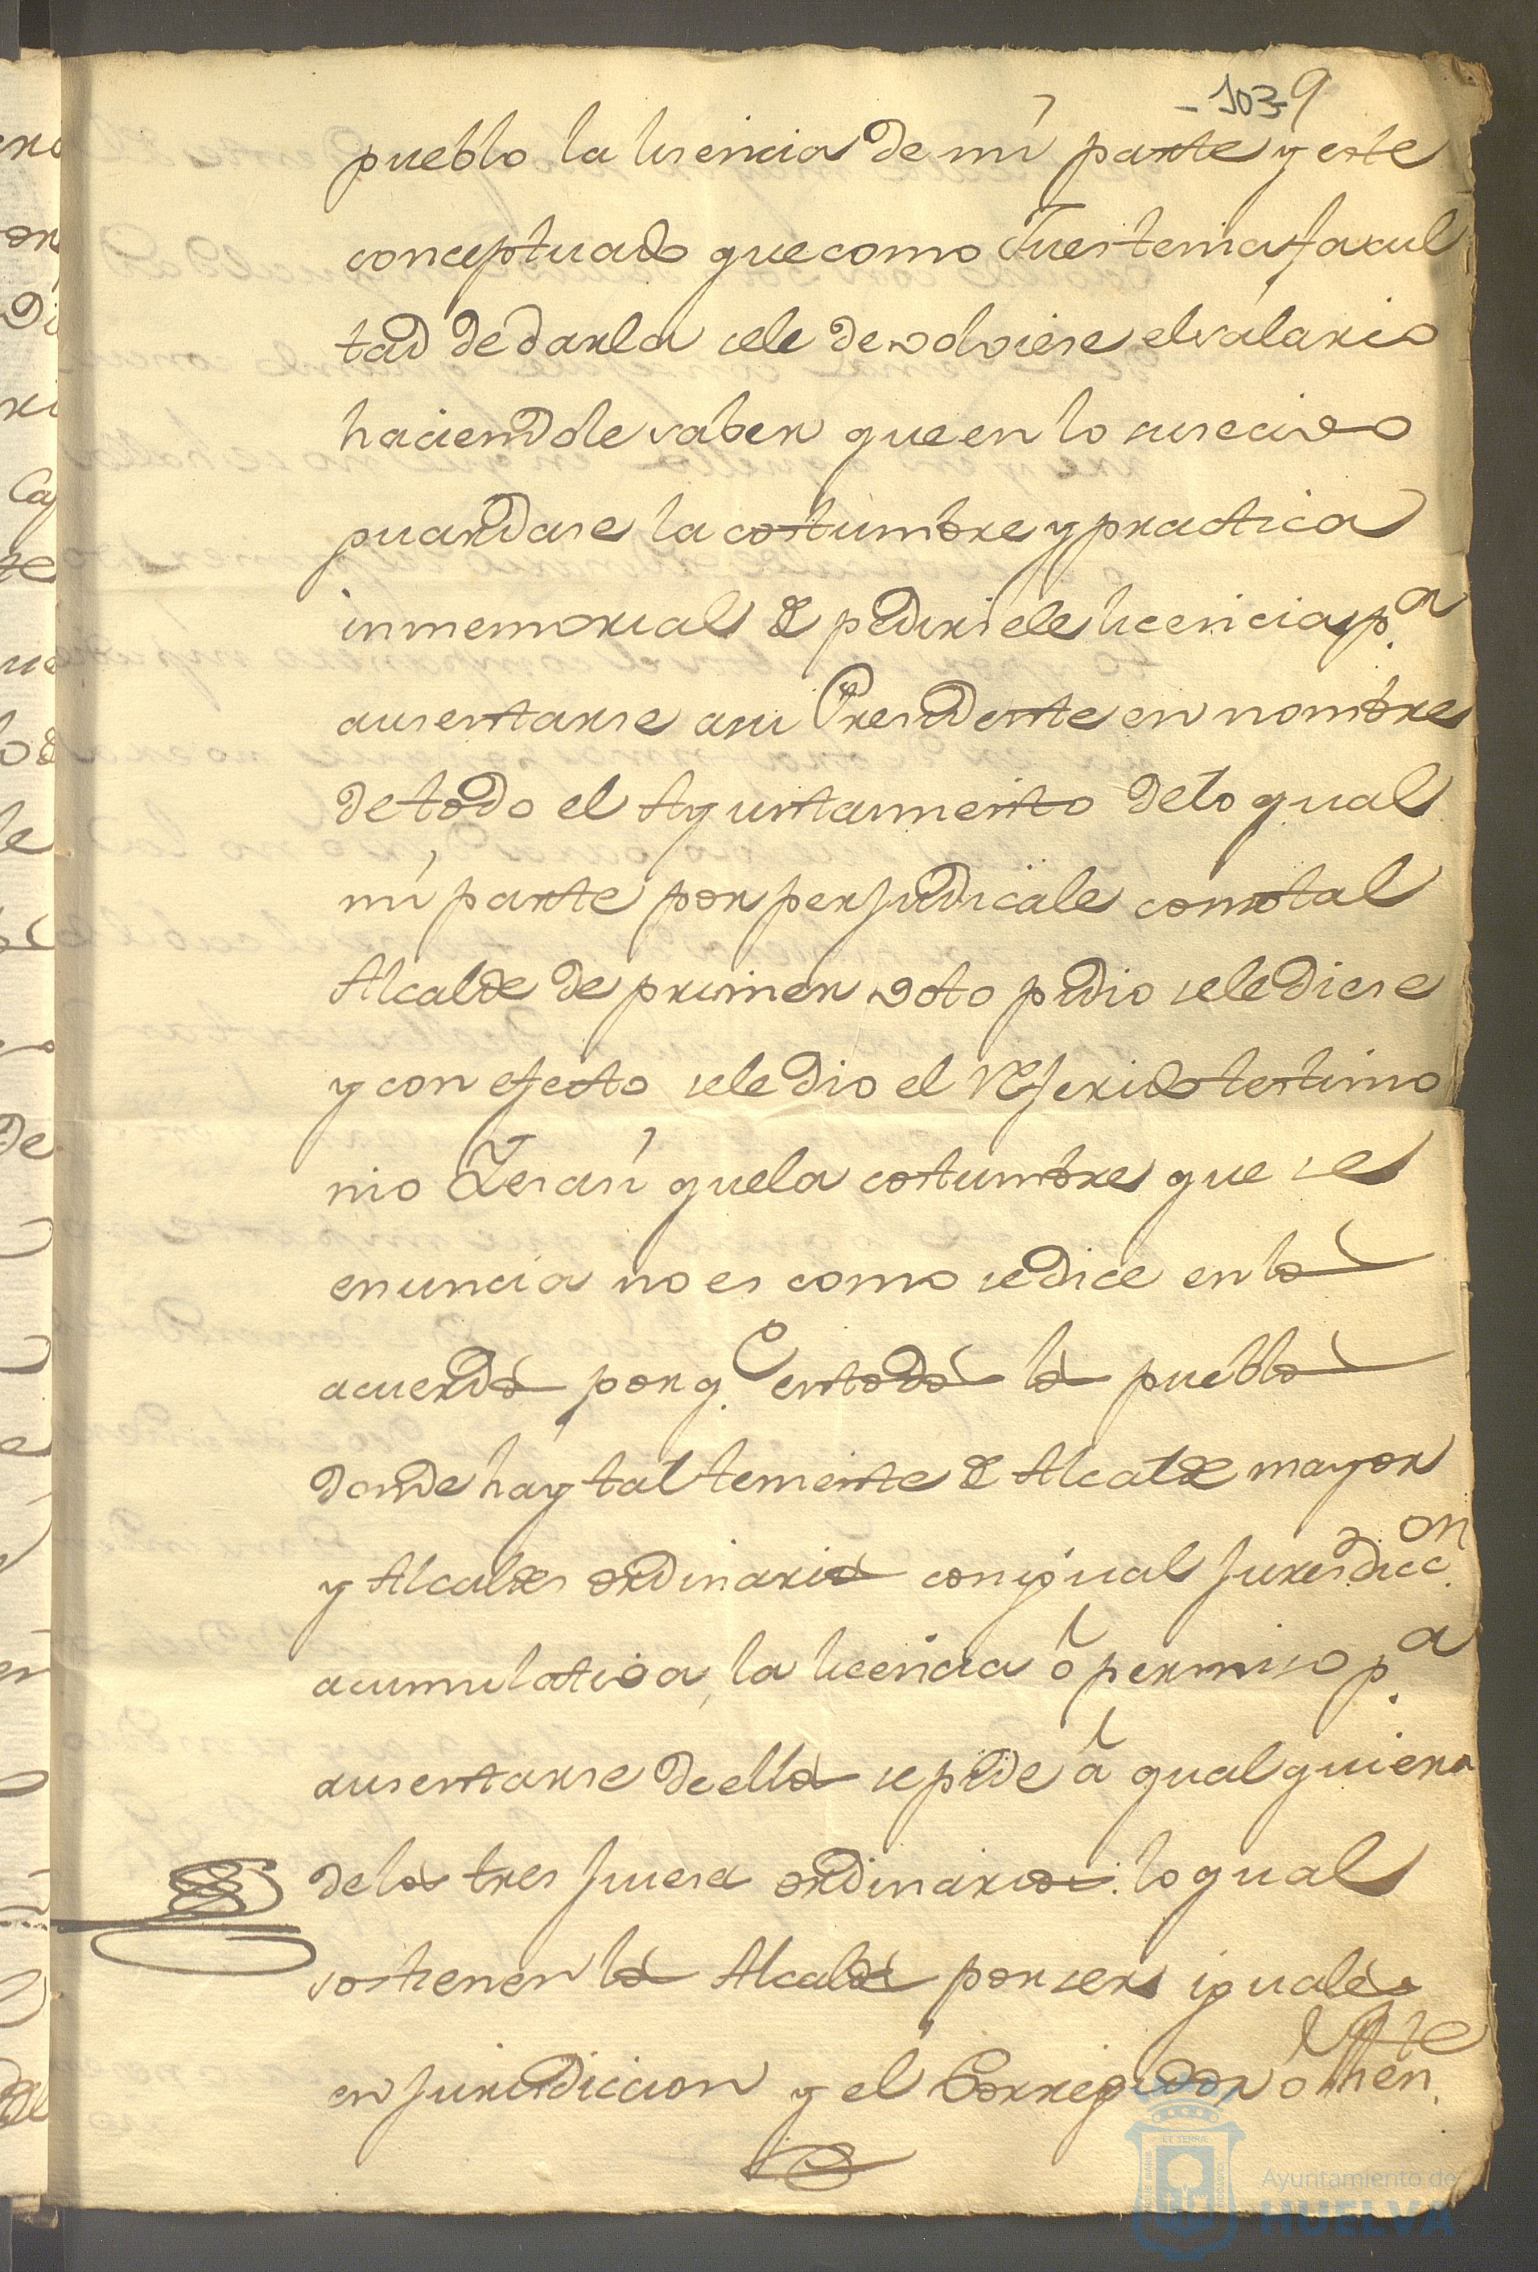 -103- 9
pueblo la lisencia de mi parte y este
conceptuado que como Jues tenia facul
tad de darla sele devolviese el salario
haciendole saber que en lo susecivo
guardase la costumbre y practica
inmemorial de pedirsele licencia p.a
ausentarse a su Presidente en nombre
de todo el Ayuntamiento delo qual
mi parte por perjudicale como tal
Alcalde de primer voto pidio sele diese
y con efecto sele dio el referido testimo
nio Y es asi que la costumbre que se
enuncia no es como se dice en los
acuerdos porq.e en todos los pueblos
donde hay tal teniente de Alcalde mayor
y Alcaldes ordinarios con igual Jurisdicc.on
acumulativa, la licencia ó permiso p.a
ausentarse de ellos se pide á qualquiera
delos tres Jueses ordinarios: lo qual
sostienen los Alcaldes por ser iguales
en Jurisdiccion y el Corregidor ó Then.te
Ayuntamiento de
HUELVA